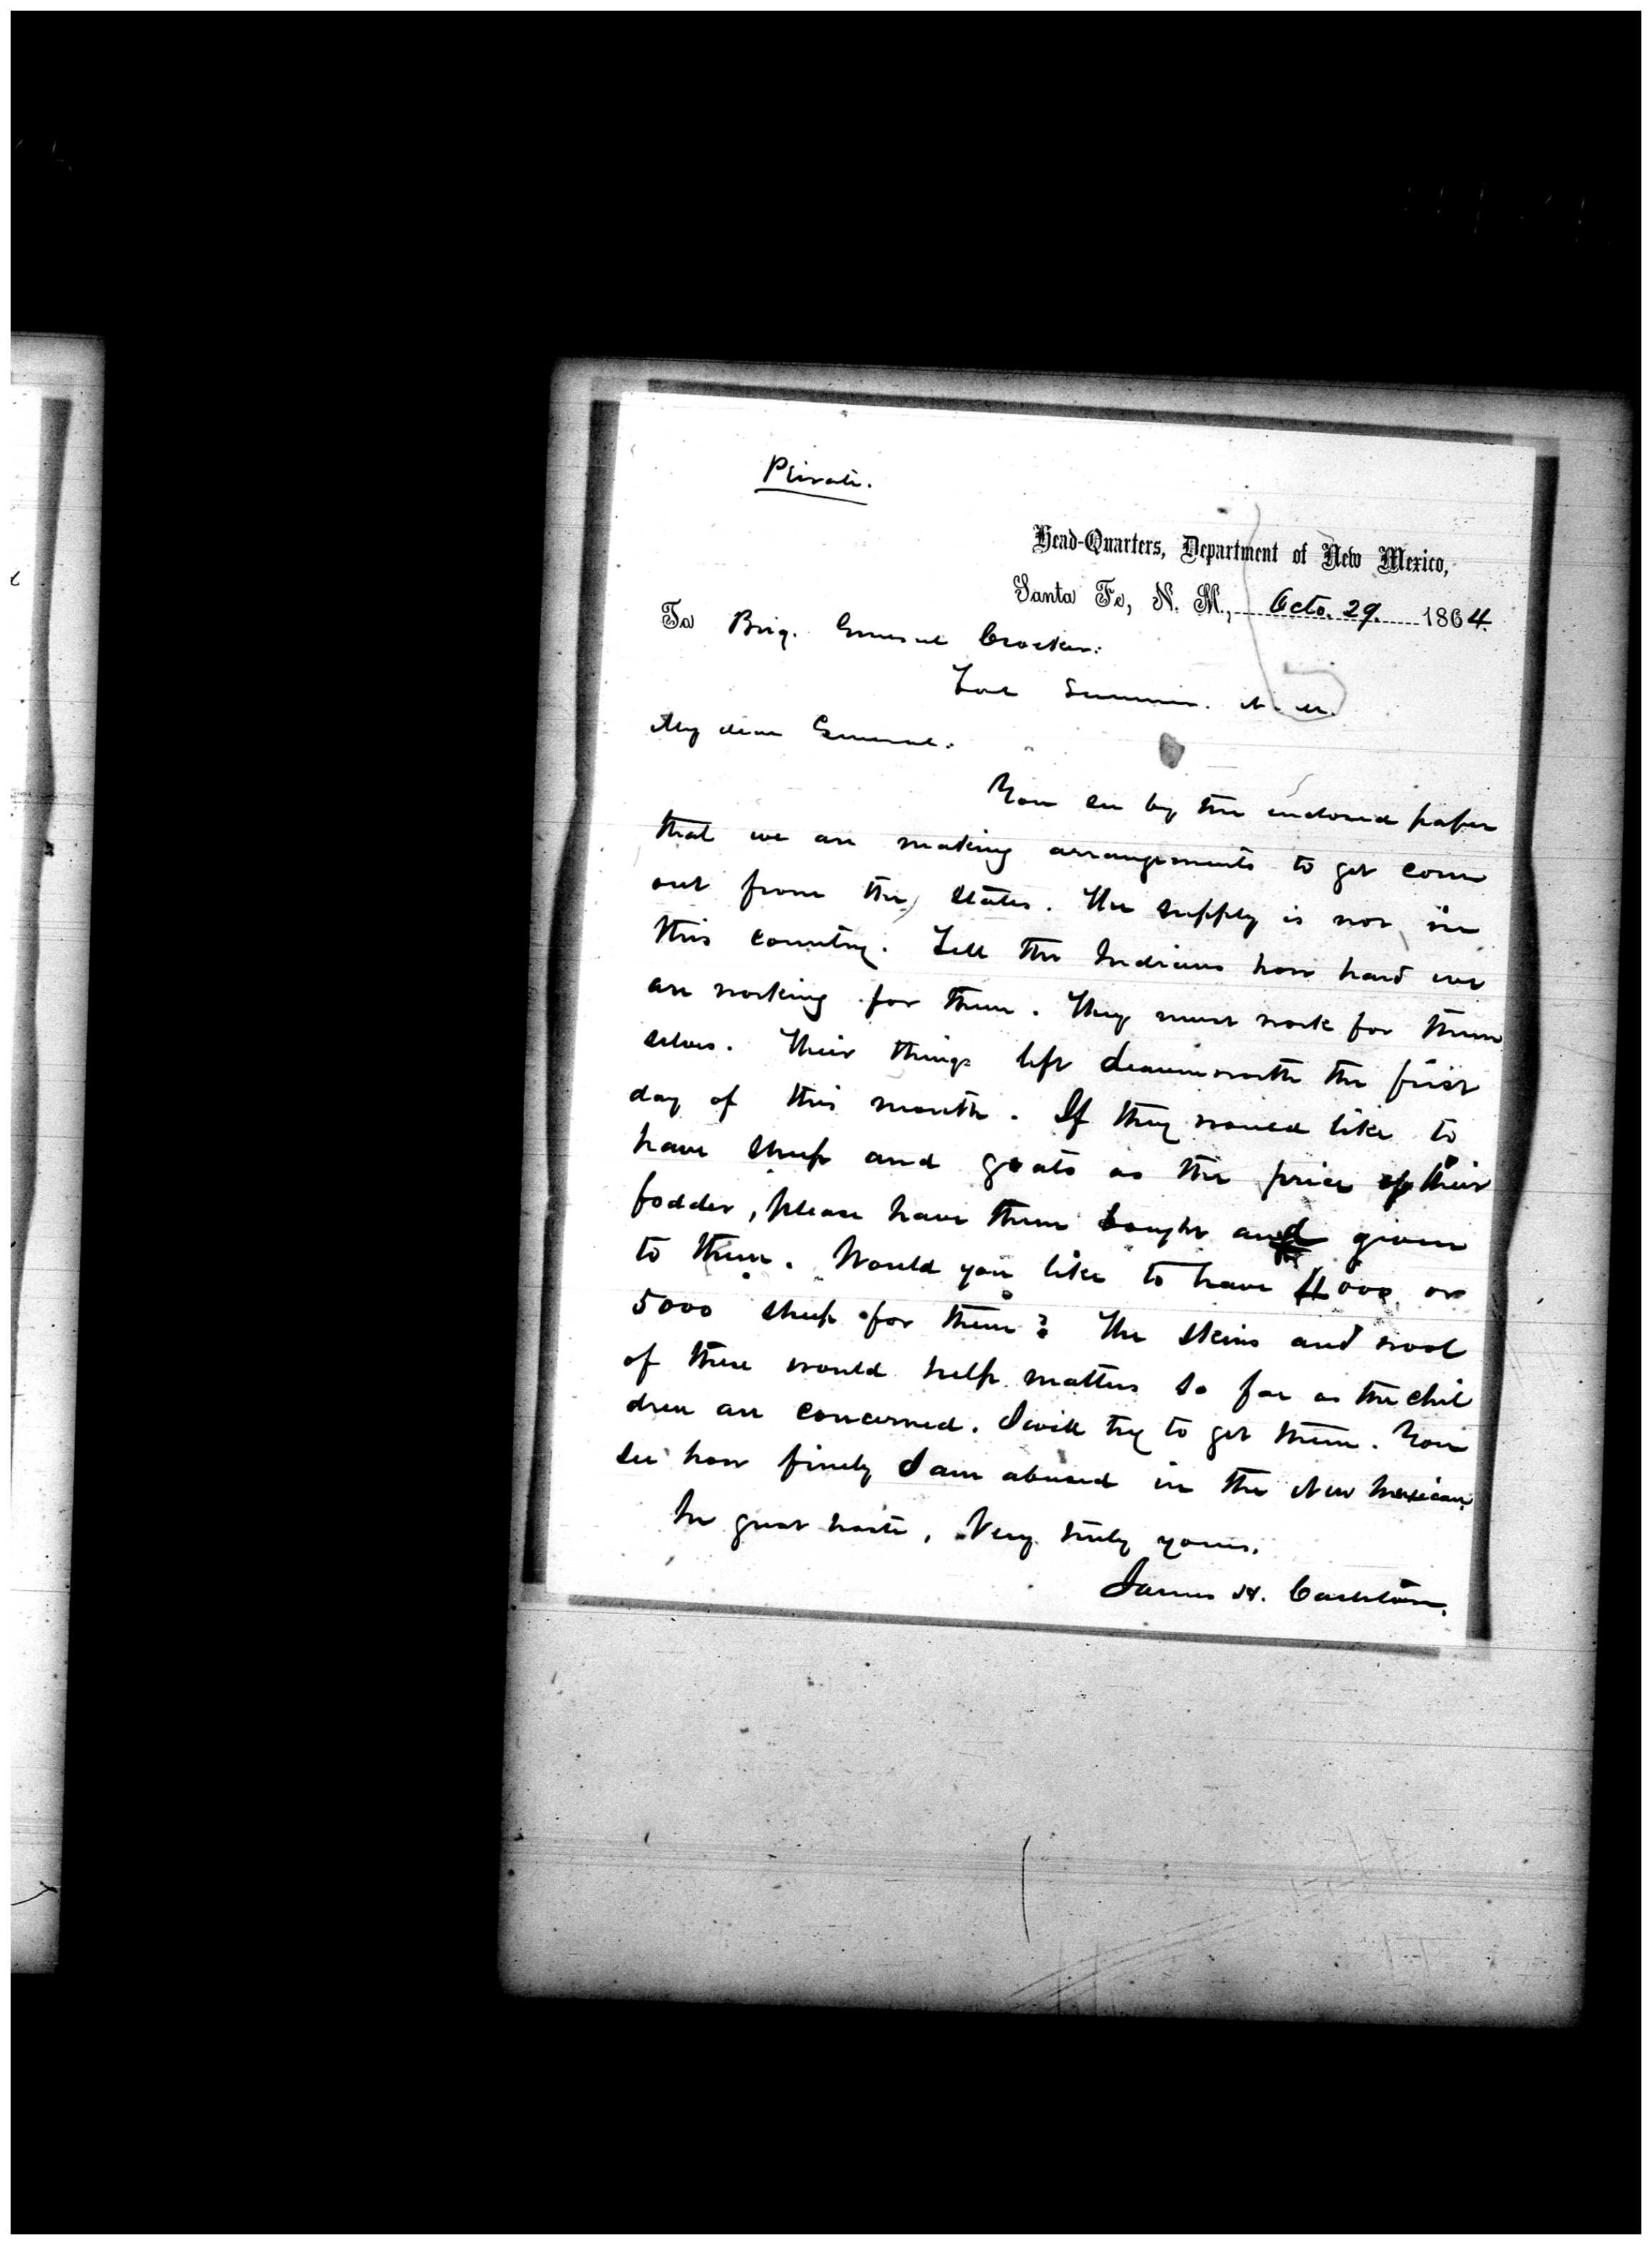 Private.
Head-Quarters, Department of New Mexico,
Santa Fe, N. M., Octo. 29. 1864.
To Brig. General Crocker:
Fort Sumner. N. M.
My dear General:
You see by the enclosed paper
that we are making arrangements to get corn
out from the states. The supply is not in
this country. Tell the Indians how hard we
are working for them. They must work for them
selves. Their things left Leavenworth the first
day of this month. If they would like to
have sheep and goats as the price of their
fodder, please have them bought and given
to them. Would you like to have 4000 or
5000 sheep for them? The skins and wool
of these would help matters so far as the chil
dren are concerned. I will try to get them. You
see how finely I am abused in the New Mexican.
In great haste, Very truly yours,
James H. Carleton.